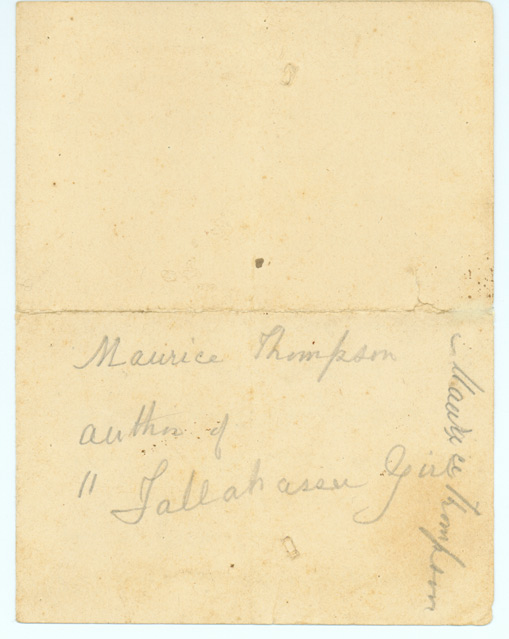 Maurice Thompson
author of
" Tallahassee Girl
Maurice Thompson